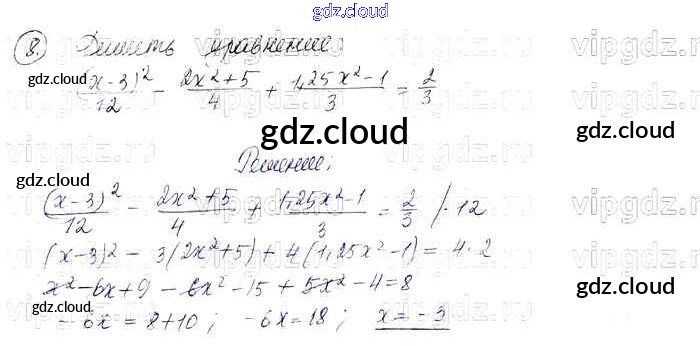 gdz.cloud
8. Решить уравнение:
(x-3)²/12 - 2x²+5/4 + 1,25x²-1/3 = 2/3
gdz.cloud
gdz.cloud
gdz.cloud
Решение:
gdz.cloud
gdz.cloud
(x-3)²/12 - 2x²+5/4 + 1,25x²-1/3 = 2/3 /·12
(x-3)² - 3(2x²+5) + 4(1,25x²-1) = 4·2
x²-6x+9 - 6x²-15 + 5x²-4=8
gdz.cloud
gdz.cloud
-6x = 8+10; -6x=18; x=-3